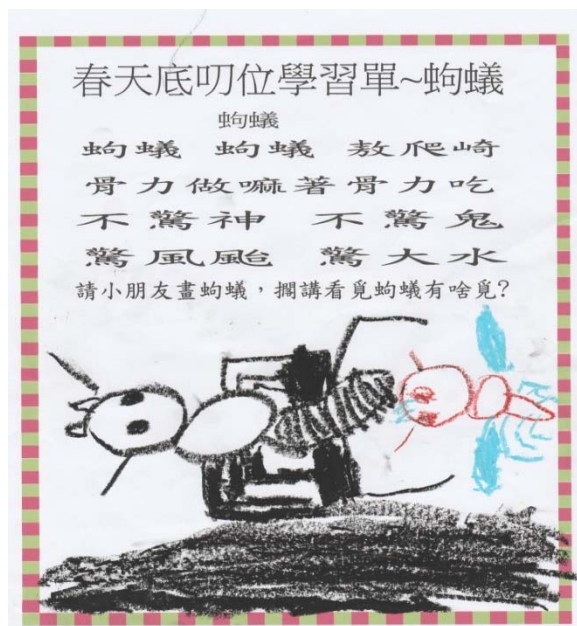 春天底叨位學習單~蚼蟻
蚼蟻
蚼蟻 蚼蟻 敖爬崎
骨力做嘛著骨力吃
不驚神 不驚鬼
驚風颱 驚大水
請小朋友畫蚼蟻，擱講看覓蚼蟻有啥覓?